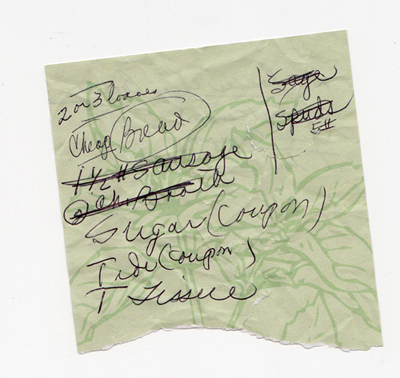 2 or 3 loaves
Cheap Bread
1 1/2 # Sausage
2 Ch. Broth
Sugar (coupon)
Tide (coupon)
T Tissue
Sage
Spuds
5#